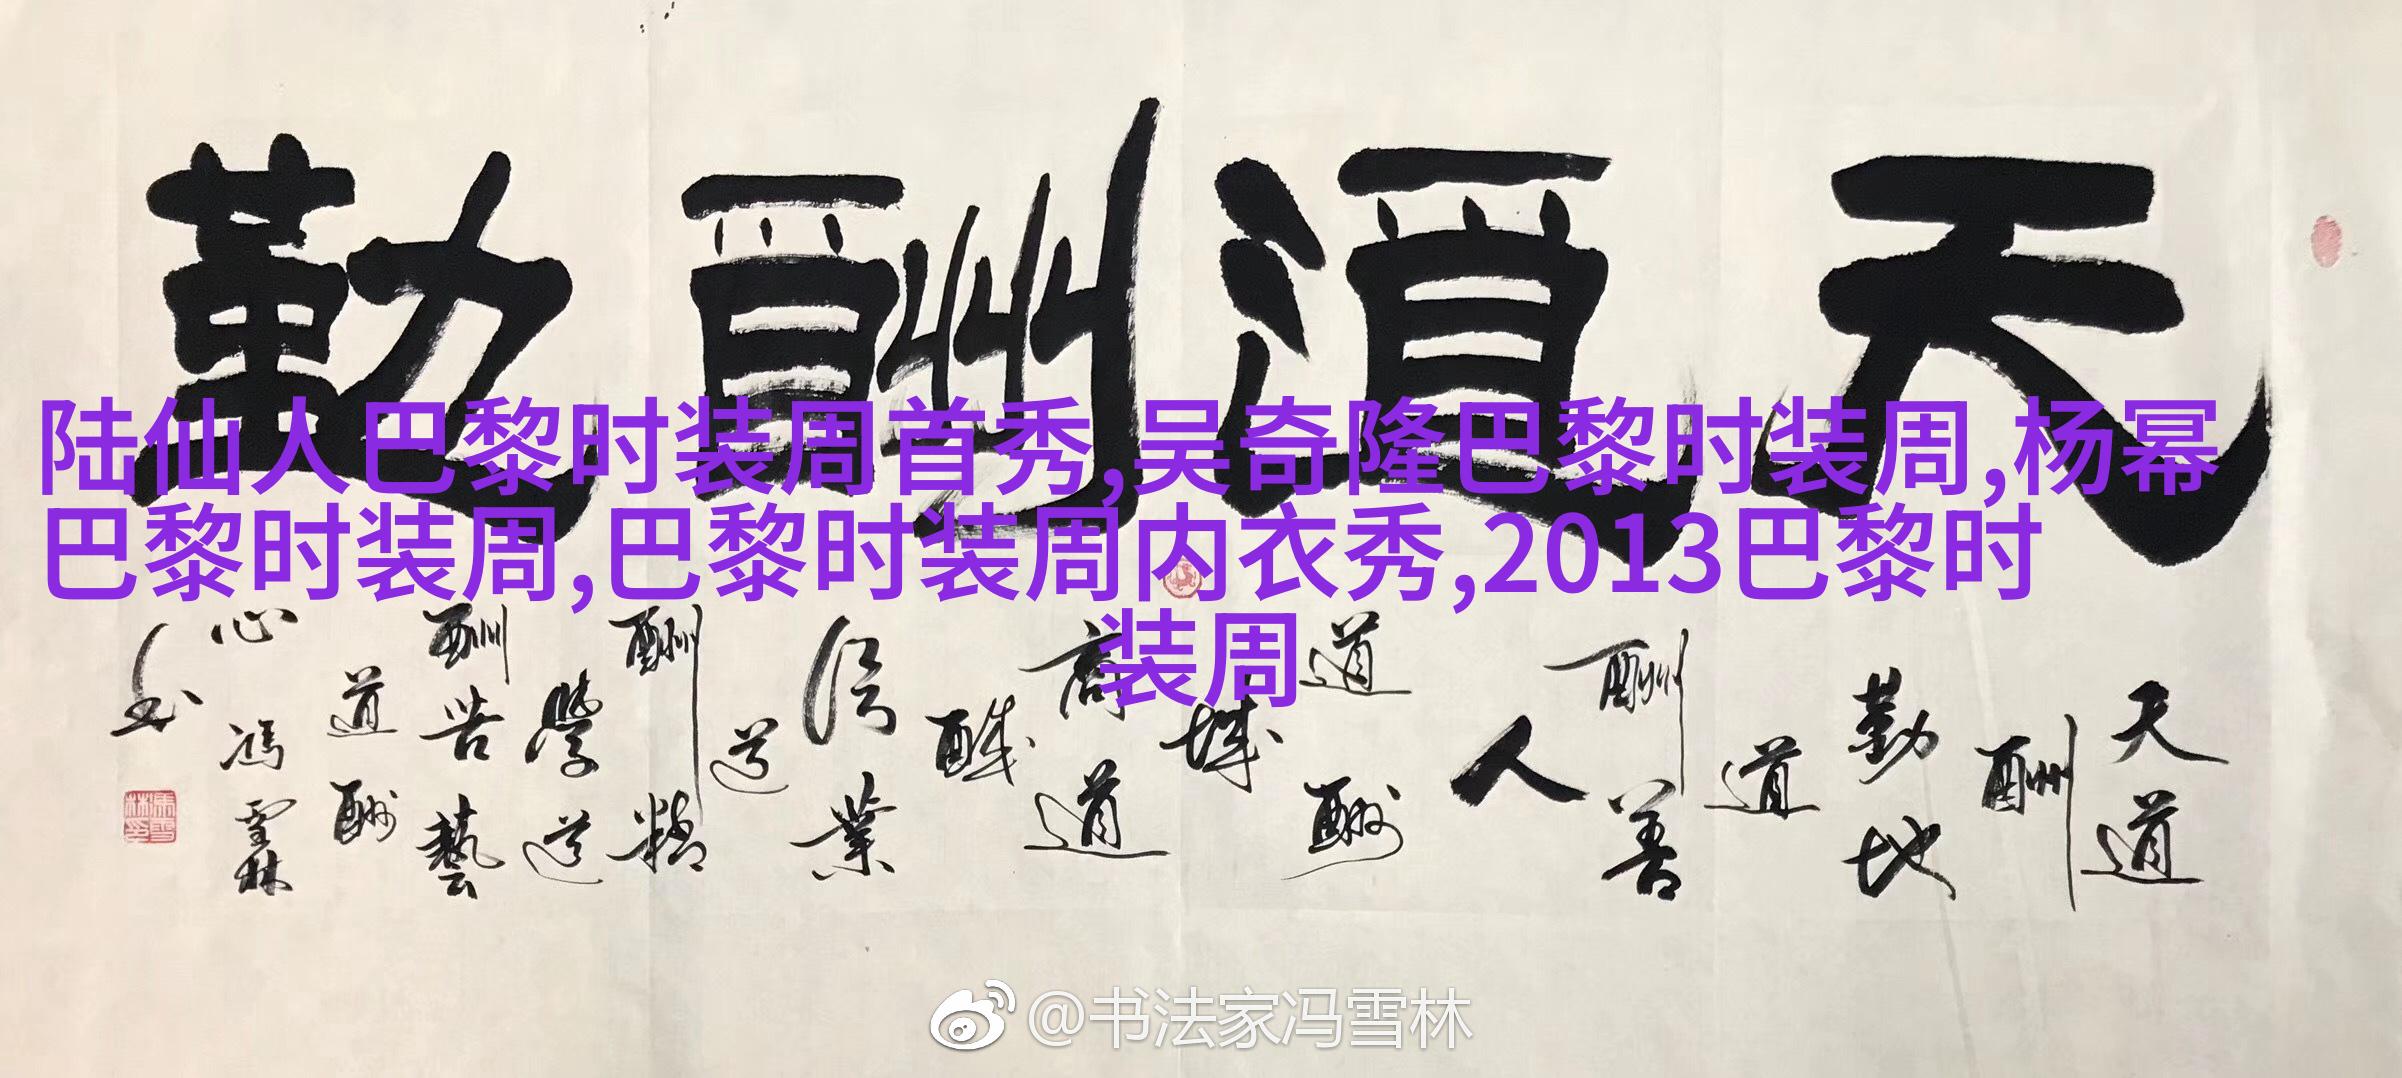 天道酬勤
陆仙人巴黎时装周首秀,吴奇隆巴黎时装周,杨幂
巴黎时装周,巴黎时装周内衣秀,2013巴黎时
装周
天道
酬
勤地
道
酬善
人
道酬
诚
商道
酬
信業
道
酬精
學道
酬苦藝
道酬
心馮雪林
书
@书法家冯雪林